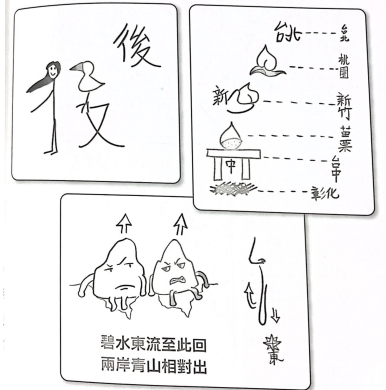 後
台北 台北
桃園
新 新竹
苗栗
中 台中
彰化
碧水東流至此回
兩岸青山相對出